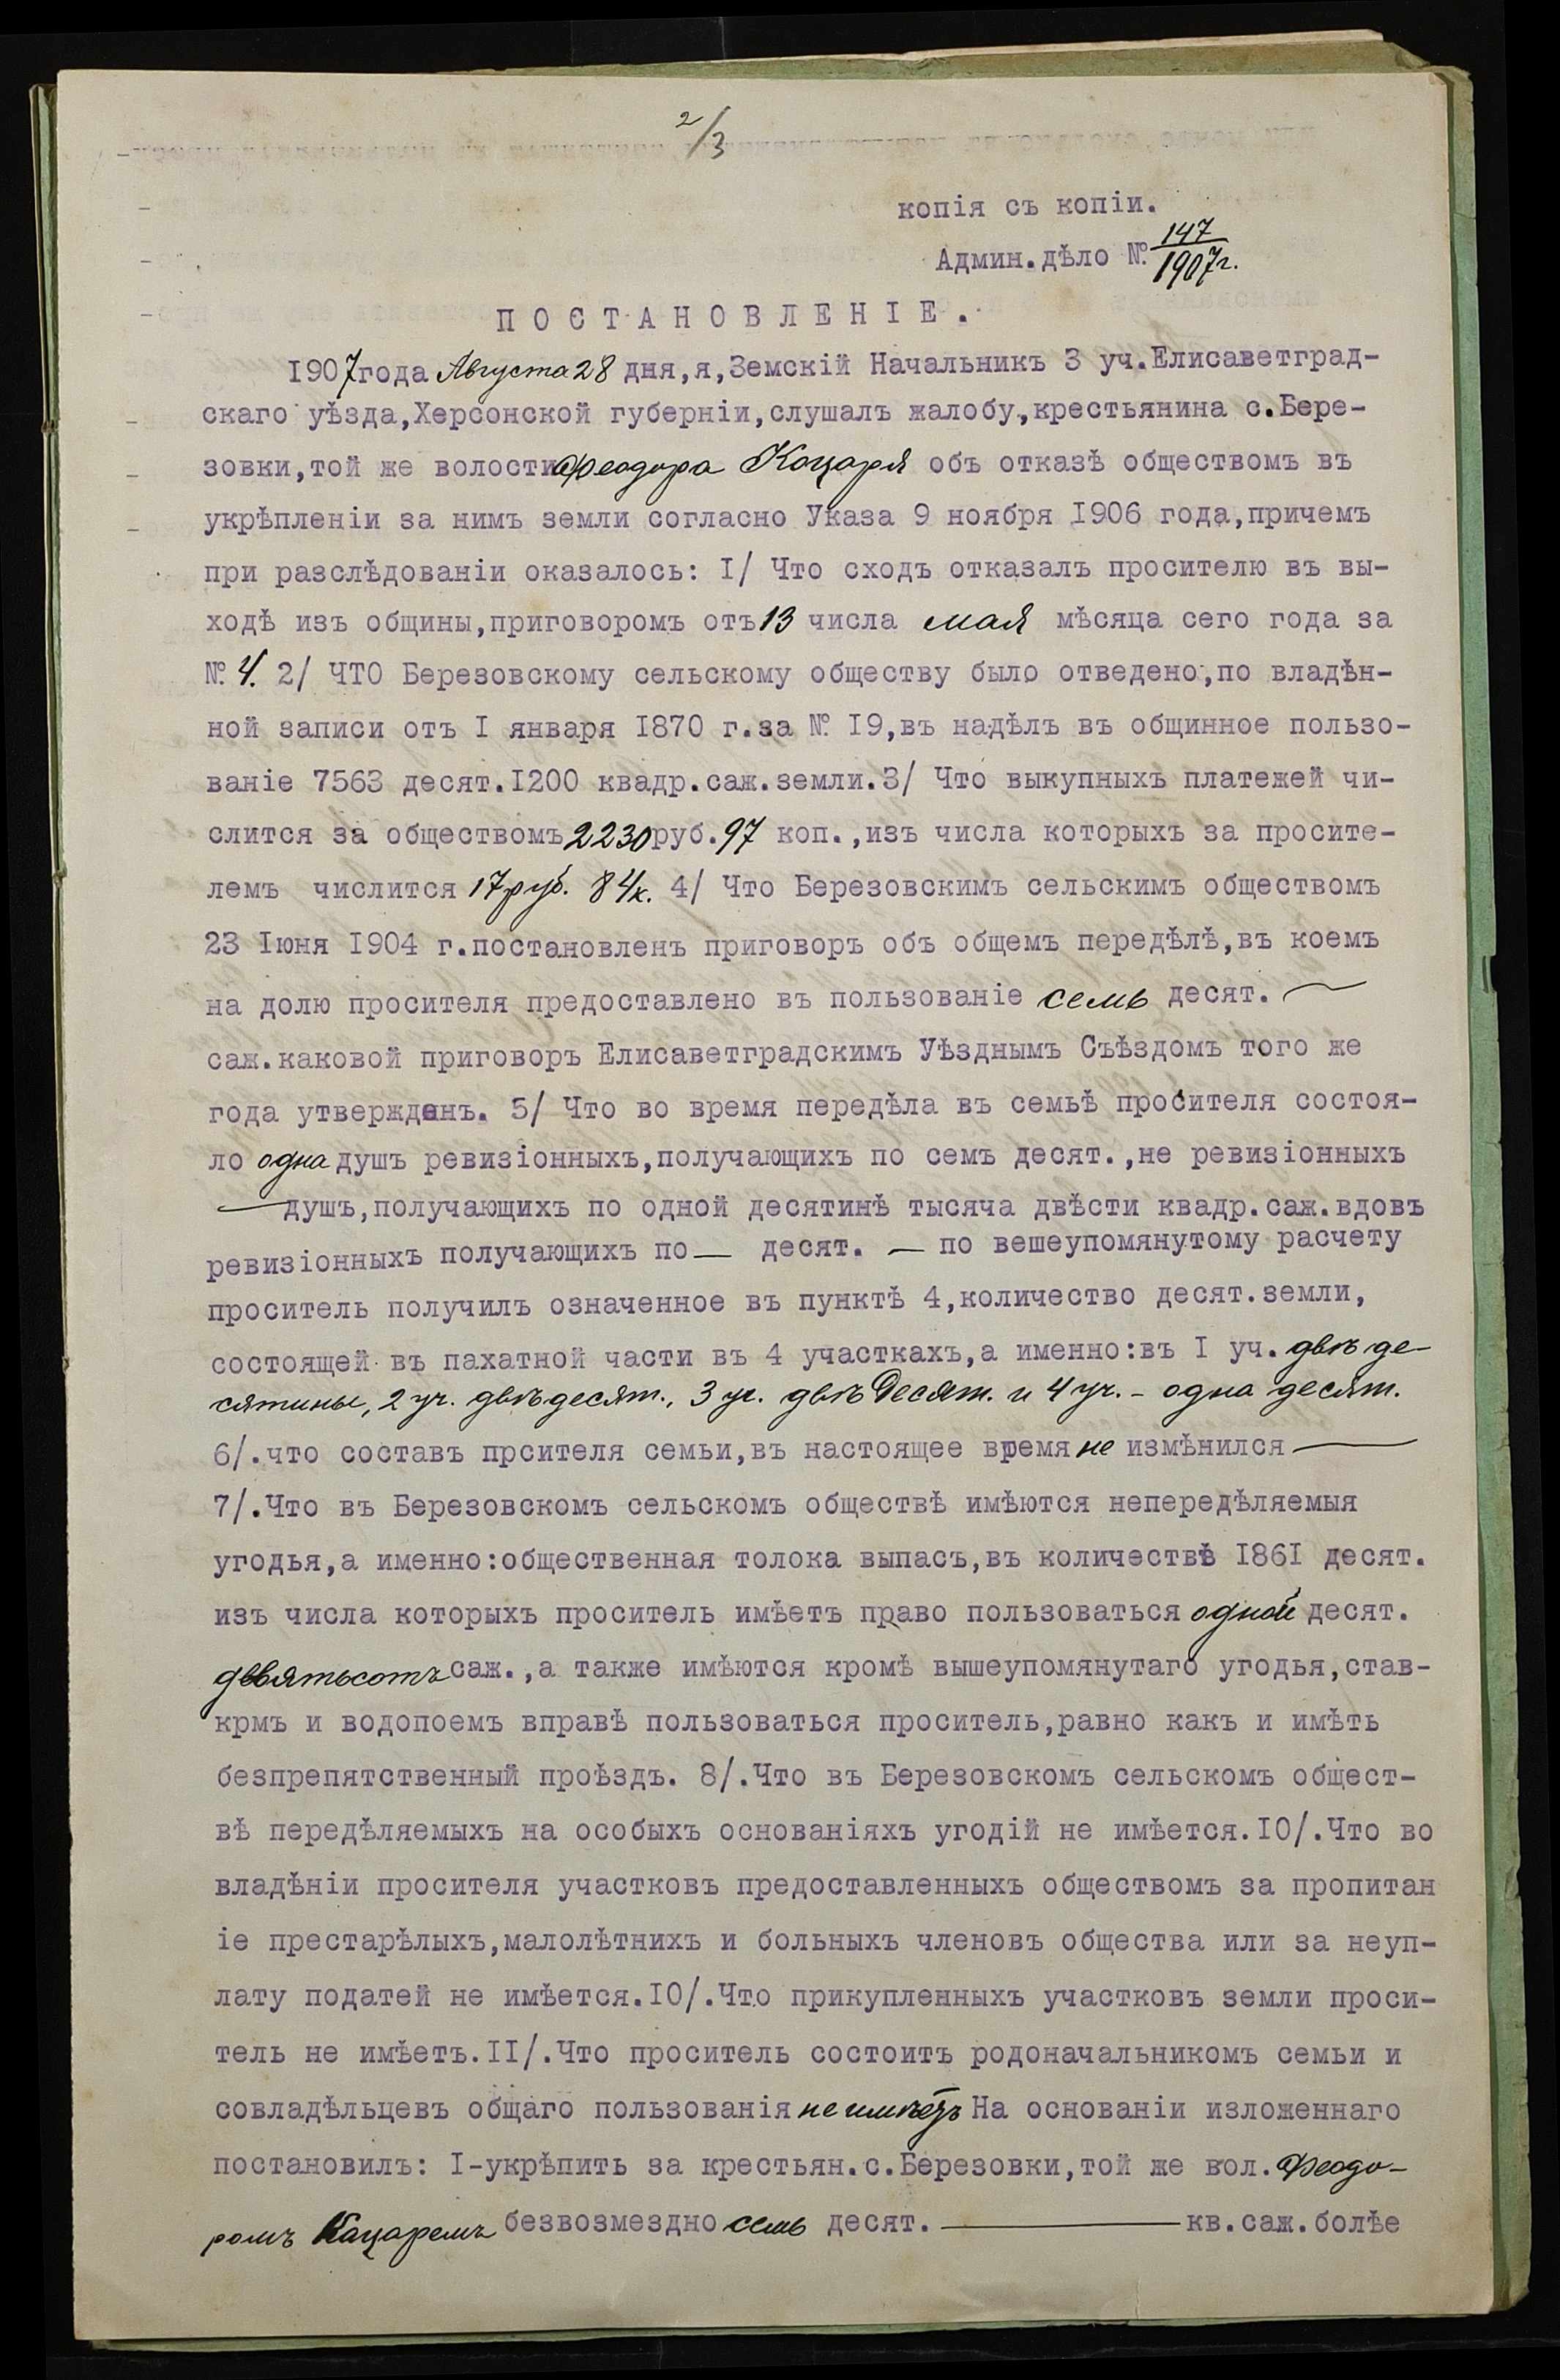 2/3
копія съ копіи.
Админ.дѣло № 147/1907г.
ПОСТАНОВЛЕНІЕ.
1907 года Августа 28 дня,я,Земскій Начальникъ 3 уч.Елисаветград-
скаго уѣзда,Херсонской губерніи,слушалъ жалобу,крестьянина с.Бере-
зовки,той же волости Феодора Коцаря объ отказѣ обществомъ въ
укрѣпленіи за нимъ земли согласно Указа 9 ноября 1906 года,причемъ
при разслѣдованіи оказалось: I/ Что сходъ отказалъ просителю въ вы-
ходѣ изъ общины,приговоромъ отъ 13 числа мая мѣсяца сего года за
№ 4. 2/ ЧТО Березовскому сельскому обществу было отведено,по владѣн-
ной записи отъ I января 1870 г.за № 19,въ надѣлъ въ общинное пользо-
ваніе 7563 десят.1200 квадр.саж.земли.3/ Что выкупныхъ платежей чи-
слится за обществомъ 2230 руб.97 коп.,изъ числа которыхъ за просите-
лемъ числится 17 руб. 84 к. 4/ Что Березовскимъ сельскимъ обществомъ
23 Іюня 1904 г.постановленъ приговоръ объ общемъ передѣлѣ,въ коемъ
на долю просителя предоставлено въ пользованіе семь десят. —
саж.каковой приговоръ Елисаветградскимъ Уѣзднымъ Съѣздомъ того же
года утвержденъ. 5/ Что во время передѣла въ семьѣ просителя состоя-
ло одна душъ ревизіонныхъ,получающихъ по семъ десят.,не ревизіонныхъ
— душъ,получающихъ по одной десятинѣ тысяча двѣсти квадр.саж.вдовъ
ревизіонныхъ получающихъ по — десят. — по вешеупомянутому расчету
проситель получилъ означенное въ пунктѣ 4,количество десят.земли,
состоящей въ пахатной части въ 4 участкахъ,а именно:въ I уч. двѣ де-
сятины, 2 уч. двѣ десят., 3 уч. двѣ десят. и 4 уч. - одна десят.
6/.что составъ прсителя семьи,въ настоящее время не измѣнился —
7/.Что въ Березовскомъ сельскомъ обществѣ имѣются непередѣляемыя
угодья,а именно:общественная толока выпасъ,въ количествѣ 1861 десят.
изъ числа которыхъ проситель имѣетъ право пользоваться одной десят.
девятьсотъ саж.,а также имѣются кромѣ вышеупомянутаго угодья,став-
крмъ и водопоемъ вправѣ пользоваться проситель,равно какъ и имѣть
безпрепятственный проѣздъ. 8/.Что въ Березовскомъ сельскомъ общест-
вѣ передѣляемыхъ на особыхъ основаніяхъ угодій не имѣется.10/.Что во
владѣніи просителя участковъ предоставленныхъ обществомъ за пропитан
іе престарѣлыхъ,малолѣтнихъ и больныхъ членовъ общества или за неуп-
лату податей не имѣется.10/.Что прикупленныхъ участковъ земли проси-
тель не имѣетъ.II/.Что проситель состоитъ родоначальникомъ семьи и
совладѣльцевъ общаго пользованія не имѣетъ На основаніи изложеннаго
постановилъ: I-укрѣпить за крестьян.с.Березовки,той же вол. Феодо-
ромъ Кацаремъ безвозмездно семь десят. — кв.саж.болѣе